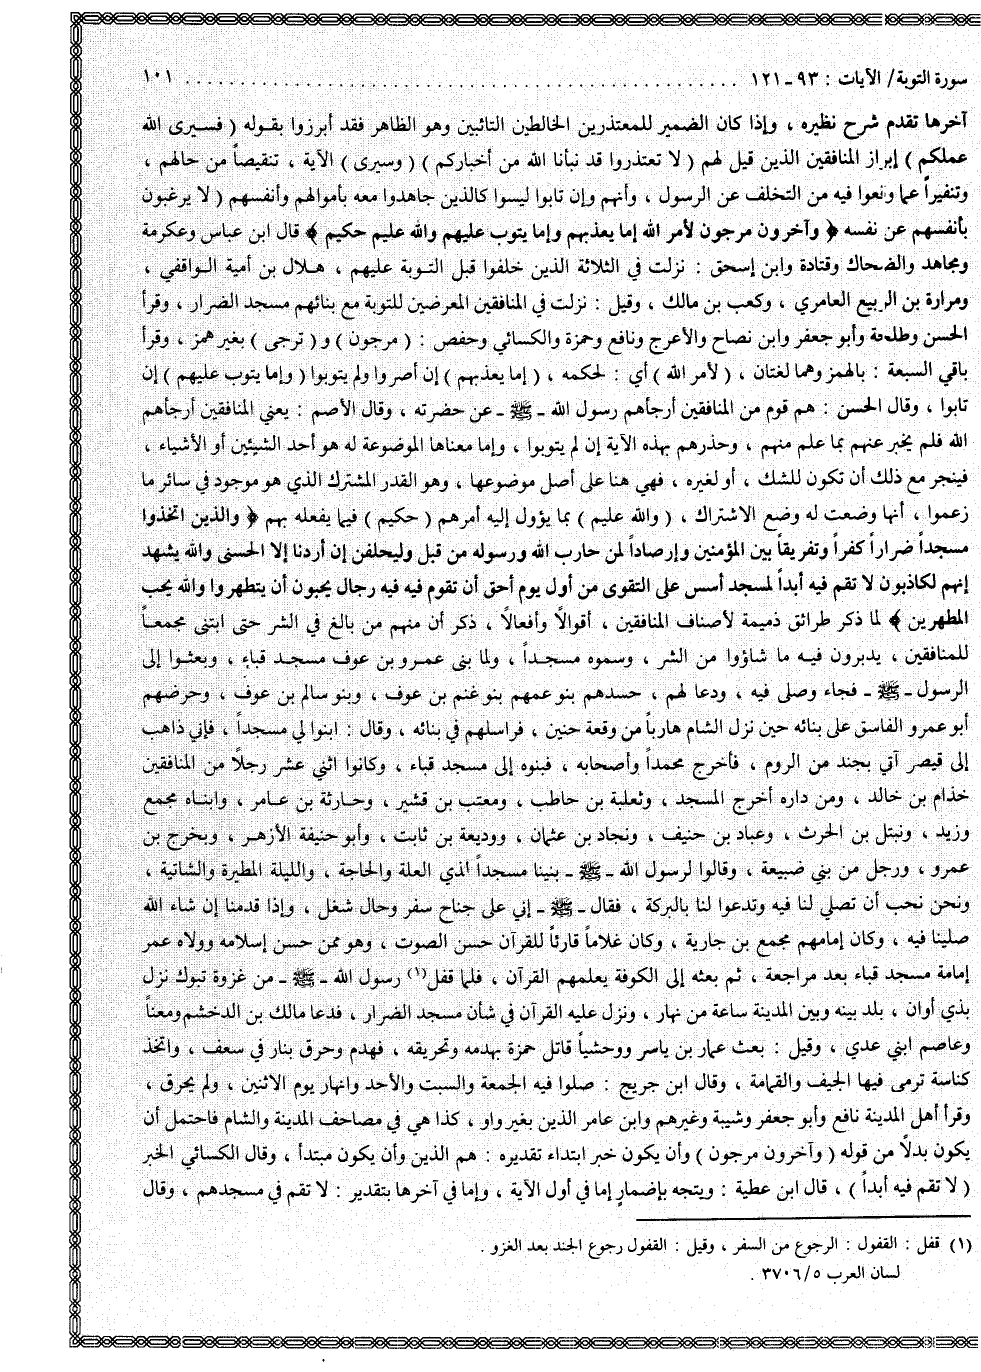 سورة التوبة/ الآيات : ٩٣ـ١٢١ . . . . . . . . . . . . . . . . . . . . . . . . . . . . . . . . . . . . . . . . . . ١٠١
آخرها تقدم شرح نظيره ، وإذا كان الضمير للمعتذرين الخالطين التائبين وهو الظاهر فقد أبرزوا بقوله ( فسيرى الله
عملكم ) إبراز المنافقين الذين قيل لهم ( لا تعتذروا قد نبأنا الله من أخباركم ) ( وسيرى ) الآية ، تنقيصاً من حالهم ،
وتنفيراً عما وقعوا فيه من التخلف عن الرسول ، وأنهم وإن تابوا ليسوا كالذين جاهدوا معه بأموالهم وأنفسهم ( لا يرغبون
بأنفسهم عن نفسه ﴿ وآخرون مرجون لأمر الله إما يعذبهم وإما يتوب عليهم والله عليم حكيم ﴾ قال ابن عباس وعكرمة
ومجاهد والضحاك وقتادة وابن إسحق : نزلت في الثلاثة الذين خلفوا قبل التوبة عليهم ، هلال بن أمية الواقفي ،
ومرارة بن الربيع العامري ، وكعب بن مالك ، وقيل : نزلت في المنافقين المعرضين للتوبة مع بنائهم مسجد الضرار ، وقرأ
الحسن وطلحة وأبو جعفر وابن نصاح والأعرج ونافع وحمزة والكسائي وحفص : ( مرجون ) و ( ترجى ) بغير همز ، وقرأ
باقي السبعة : بالهمز وهما لغتان ، ( لأمر الله ) أي : لحكمه ، ( إما يعذبهم ) إن أصروا ولم يتوبوا ( وإما يتوب عليهم ) إن
تابوا ، وقال الحسن : هم قوم من المنافقين أرجأهم رسول الله ـ ﷺ ـ عن حضرته ، وقال الأصم : يعني المنافقين أرجأهم
الله فلم يخبر عنهم بما علم منهم ، وحذرهم بهذه الآية إن لم يتوبوا ، وإما معناها الموضوعة له هو أحد الشيئين أو الأشياء ،
فينجر مع ذلك أن تكون للشك ، أو لغيره ، فهي هنا على أصل موضوعها ، وهو القدر المشترك الذي هو موجود في سائر ما
زعموا ، أنها وضعت له وضع الاشتراك ، ( والله عليم ) بما يؤول إليه أمرهم ( حكيم ) فيما يفعله بهم ﴿ والذين اتخذوا
مسجداً ضراراً كفراً وتفريقاً بين المؤمنين وإرصاداً لمن حارب الله ورسوله من قبل وليحلفن إن أردنا إلا الحسنى والله يشهد
إنهم لكاذبون لا تقم فيه أبداً لمسجد أسس على التقوى من أول يوم أحق أن تقوم فيه فيه رجال يحبون أن يتطهروا والله يحب
المطهرين ﴾ لما ذكر طرائق ذميمة لأصناف المنافقين ، أقوالًا وأفعالًا ، ذكر أن منهم من بالغ في الشر حتى ابتنى مجمعاً
للمنافقين ، يدبرون فيه ما شاؤوا من الشر ، وسموه مسجداً ، ولما بنى عمرو بن عوف مسجد قباء ، وبعثوا إلى
الرسول ـ ﷺ ـ فجاء وصلى فيه ، ودعا لهم ، حسدهم بنو عمهم بنو غنم بن عوف ، وبنو سالم بن عوف ، وحرضهم
أبو عمرو الفاسق على بنائه حين نزل الشام هارباً من وقعة حنين ، فراسلهم في بنائه ، وقال : ابنوا لي مسجداً ، فإني ذاهب
إلى قيصر آتي بجند من الروم ، فأخرج محمداً وأصحابه ، فبنوه إلى مسجد قباء ، وكانوا اثني عشر رجلاً من المنافقين
خذام بن خالد ، ومن داره أخرج المسجد ، وثعلبة بن حاطب ، ومعتب بن قشير ، وحارثة بن عامر ، وابناه مجمع
وزيد ، ونبتل بن الحرث ، وعباد بن حنيف ، ونجاد بن عثمان ، ووديعة بن ثابت ، وأبو حنيفة الأزهر ، وبخرج بن
عمرو ، ورجل من بني ضبيعة ، وقالوا لرسول الله ـ ﷺ ـ بنينا مسجداً لذي العلة والحاجة ، والليلة المطيرة والشاتية ،
ونحن نحب أن تصلي لنا فيه وتدعوا لنا بالبركة ، فقال ـ ﷺ ـ إني على جناح سفر وحال شغل ، وإذا قدمنا إن شاء الله
صلينا فيه ، وكان إمامهم مجمع بن جارية ، وكان غلاماً قارئاً للقرآن حسن الصوت ، وهو ممن حسن إسلامه وولاه عمر
إمامة مسجد قباء بعد مراجعة ، ثم بعثه إلى الكوفة يعلمهم القرآن ، فلما قفل(١) رسول الله ـ ﷺ ـ من غزوة تبوك نزل
بذي أوان ، بلد بينه وبين المدينة ساعة من نهار ، ونزل عليه القرآن في شأن مسجد الضرار ، فدعا مالك بن الدخشم ومعناً
وعاصم ابني عدي ، وقيل : بعث عمار بن ياسر ووحشياً قاتل حمزة بهدمه وتحريقه ، فهدم وحرق بنار في سعف ، واتخذ
كناسة ترمى فيها الجيف والقمامة ، وقال ابن جريج : صلوا فيه الجمعة والسبت والأحد وانهار يوم الاثنين ، ولم يحرق ،
وقرأ أهل المدينة نافع وأبو جعفر وشيبة وغيرهم وابن عامر الذين بغير واو ، كذا هي في مصاحف المدينة والشام فاحتمل أن
يكون بدلًا من قوله ( وآخرون مرجون ) وأن يكون خبر ابتداء تقديره : هم الذين وأن يكون مبتدأ ، وقال الكسائي الخبر
( لا تقم فيه أبداً ) ، قال ابن عطية : ويتجه بإضمار إما في أول الآية ، وإما في آخرها بتقدير : لا تقم في مسجدهم ، وقال
(١) قفل : القفول : الرجوع من السفر ، وقيل : القفول رجوع الجند بعد الغزو .
لسان العرب ٥/٣٧٠٦ .